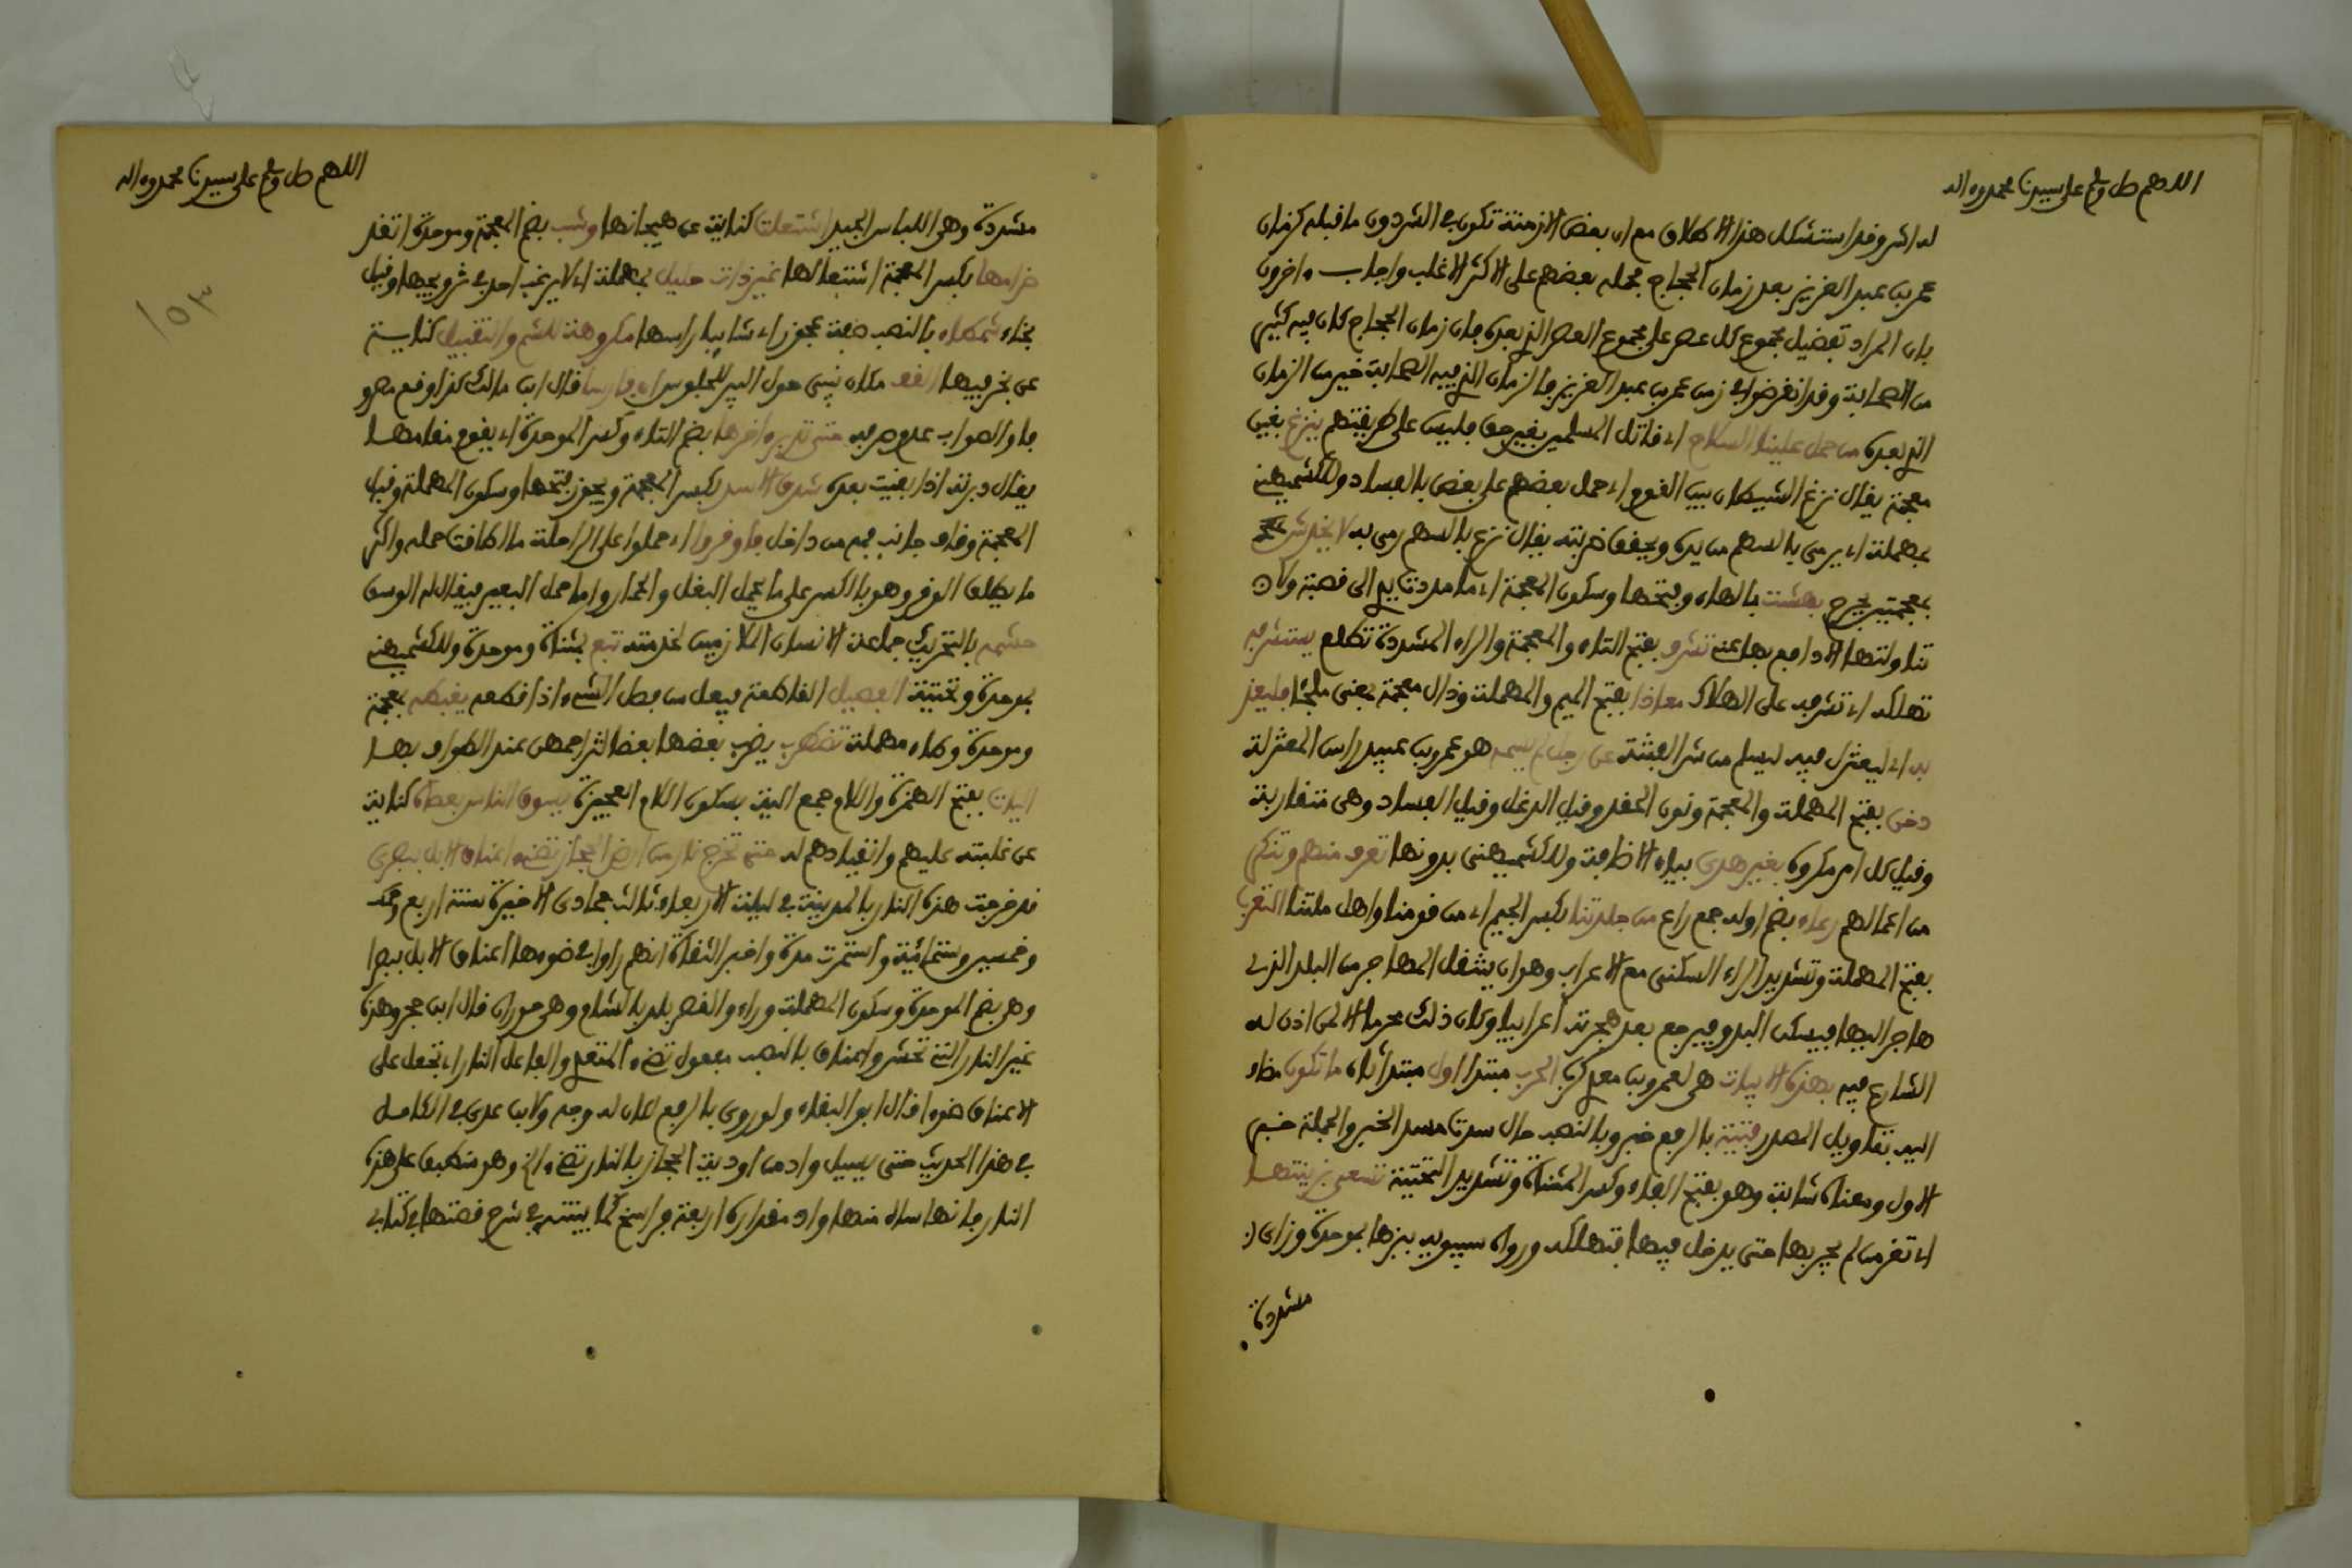 اللهم صل وسلم على سيدنا محمد وءاله
له اشر وقد استشكل هذا الاطلاق مع ان بعض الازمنة تكون في الشر دون ما قبله كزمان
عمر بن عبد العزيز بعد زمان الحجاج فحمله بعضهم على الاكثر الاغلب واجاب ءاخرون
بان المراد تفضيل مجموع كل عصر على مجموع العصر الذي بعده فان زمان الحجاج كان فيه كثير
من الصحابة وقد انقرضوا في زمن عمر بن عبد العزيز والزمان الذي فيه الصحابة خير من الزمان
الذي بعده من حمل علينا السلاح اي قاتل المسلمين بغير حق فليس على طريقتهم ينزغ بغين
معجمة يقال نزغ الشيطان بين القوم اي حمل بعضهم على بعض بالفساد وللكشميهني
بمهملة اي يرمي بالسهم من يده ويحقق ضربته يقال نزع بالسهم رمى به لا يخدش
بمعجمتين يجرح بهشت بالهاء وفتحها وسكون المعجمة اي ما مددت يدي الى قصبة ولا
تناولتها لادافع بها عني تشرف بفتح التاء والمعجمة والراء المشددة تطلع يستشرفه
تهلكه اي تشرفه على الهلاك معاذا بفتح الميم والمهملة وذال معجمة بمعنى ملجئا فليعذ
به اي ليعتزل فيه ليسلم من شر الفتنة عن رجل لم يسمه هو عمرو بن عبيد راس المعتزلة
دخن بفتح المهملة والمعجمة ونون الحقد وقيل الدغل وقيل الفساد وهي متقاربة
وقيل كل امر مكروه بغير هدى بياء الاضافة وللكشميهني بدونها تعرف منهم وتنكر
من اعمالهم دعاة بضم اوله جمع داع من جلدتنا بكسر الجيم اي من قومنا واهل ملتنا التعرب
بفتح المهملة وتشديد الراء السكنى مع الاعراب وهو ان ينتقل المهاجر من البلد الذي
هاجر اليها فيسكن البدو فيرجع بعد هجرته اعرابيا وكان ذلك محرما الا لمن اذن له
الشارع فيه بهذه الابيات هي لعمرو بن معدي كرب الحرب مبتدا اول مبتدا ثان ما تكون مضاف
اليه بتاويل المصدر فتية بالرفع خبر وبالنصب حال سدت مسد الخبر والجملة خبر
الاول ومعناه شابة وهو بفتح الفاء وكسر المثناة وتشديد التحتية تسعى بزينتها
اي تغر من لم يجربها حتى يدخل فيها فتهلكه ورواه سيبويه ببزها بموحدة وزاي
مشددة
اللهم صل وسلم على سيدنا محمد وءاله
١٥٣
مشددة وهي اللباس الجيد اشتعلت كناية عن هيجانها وشب بضم المعجمة وموحدة اتقد
ضرامها بكسر المعجمة اشتعالها غير ذات حليل بمهملة اي لا يرغب احد في تزويجها وقيل
بخاء شمطاء بالنصب صفة عجوز اي شاب راسها مكروهة للشم والتقبيل كناية
عن بخر فيها القف مكان يبنى حول البير للجلوس اي فارسا قال ابن مالك كذا وقع وهو
والصواب عدم صرفه حتى تدبر ءاخرها بضم التاء وكسر الموحدة اي يقوم مقامها
يقال دبرته اذا بقيت بعده شدق الاسد بكسر المعجمة ويجوز فتحها وسكون المهملة وقيل
المعجمة وقاف جانب فمه من داخل فاوقروا اي حملوا على الراحلة ما اطاقت حمله واكثر
ما يطلق الوقر وهو بالكسر على ما يحمل البغل والحمار واما حمل البعير فيقال له الوسق
حشمه بالتحريك جماعة الانسان الملازمين لخدمته تبع بمثناة وموحدة وللكشميهني
بموحدة وتحتية الفيصل القاطعة فيعل من فصل الشيء اذا قطعه يغبطه بمعجمة
وموحدة وطاء مهملة تضطرب يضرب بعضها بعضا لتزاحمهن عند الطواف بها
اليات بفتح الهمزة واللام جمع الية بسكون اللام العجيزة يسوق الناس بعصاه كناية
عن غلبته عليهم وانقيادهم له حتى تخرج نار من ارض الحجاز تضيء اعناق الابل ببصرى
قد خرجت هذه النار بالمدينة في ليلة الاربعاء ثالث جمادى الاخيرة سنة اربع
وخمسين وستمائة واستمرت مدة واخبر الثقاة انهم راوا في ضوءها اعناق الابل ببصرا
وهي بضم الموحدة وسكون المهملة وراء والقصر بلد بالشام وهي حوران قال ابن حجر وهذه
غير النار التي تحشر واعناق بالنصب مفعول تضيء المتعدي والفاعل النار اي تجعل على
الاعناق ضوءا قال ابو البقاء ولو روي بالرفع لكان له وجه ولابن عدي في الكامل
في هذا الحديث حتى يسيل واد من اودية الحجاز بالنار تضيء الخ وهو منطبق على هذه
النار فانها سال منها واد مقداره اربعة فراسخ كما بينته في شرح قصتها في كتابي